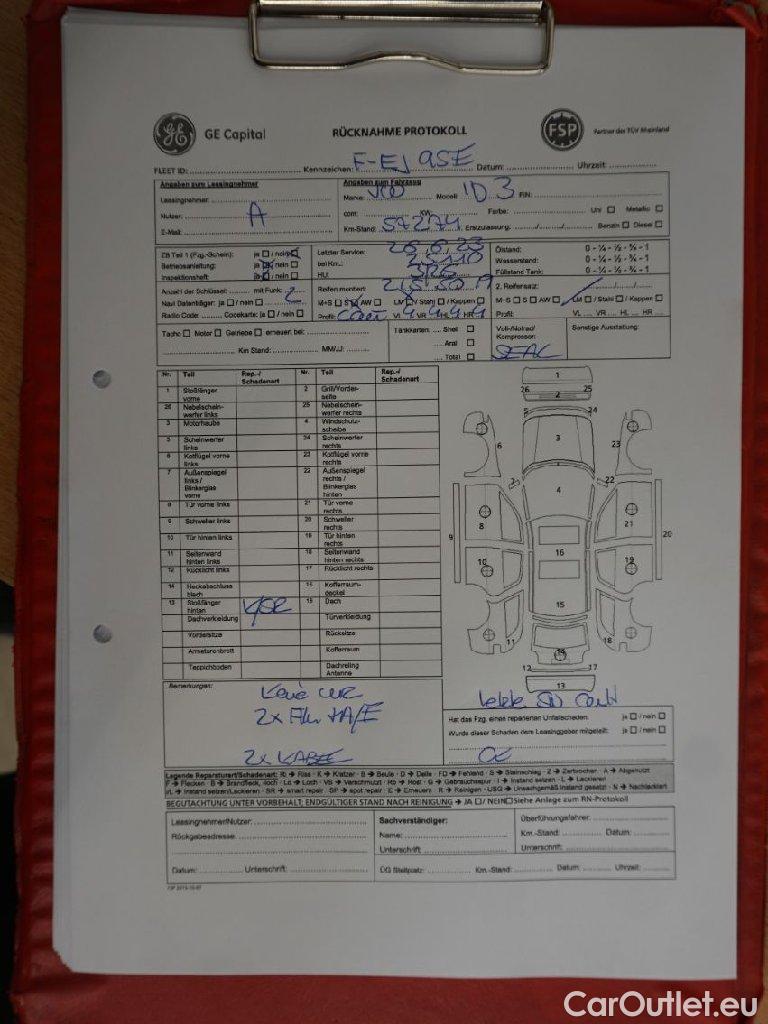 GE Capital
RÜCKNAHME PROTOKOLL
FSP
Partner des TÜV Rheinland
FLEET ID: Kennzeichen: F-EJ 95E Datum: Uhrzeit:
Angaben zum Leasingnehmer
Leasingnehmer:
Nutzer: A
E-Mail:
Angaben zum Fahrzeug
Marke: VW Modell: ID 3 FIN:
ccm: KW: Farbe: Uni Metallic
Km-Stand: 57274 Erstzulassung: Benzin Diesel
ZB Teil 1 (Fzg.-Schein): ja / nein
Betriebsanleitung: ja / nein
Inspektionsheft: ja / nein
Letzter Service: 26.6.23
bei Km:
HU:
Ölstand: 0 - ¼ - ½ - ¾ - 1
Wasserstand: 0 - ¼ - ½ - ¾ - 1
Füllstand Tank: 0 - ¼ - ½ - ¾ - 1
Anzahl der Schlüssel: mit Funk: 2
Navi Datenträger: ja / nein
Radio Code: Codekarte: ja / nein
Reifen montiert: 215 50 19
M+S S AW LM / Stahl / Kappen
Profil: VL 4 VR 4 HL 4 HR 4
2. Reifensatz:
M+S S AW LM / Stahl / Kappen
Profil: VL VR HL HR
Tacho Motor Getriebe erneuert bei:
Km Stand: MM/JJ:
Tankkarten: Shell
Aral
Total
Voll-/Notrad/
Kompressor:
SEAL
Sonstige Ausstattung:
Nr. Teil Rep.-/ Schadenart Nr. Teil Rep.-/ Schadenart
1 Stoßfänger vorne 2 Grill/Vorderseite
26 Nebelscheinwerfer links 25 Nebelscheinwerfer rechts
3 Motorhaube 4 Windschutzscheibe
5 Scheinwerfer links 24 Scheinwerfer rechts
6 Kotflügel vorne links 23 Kotflügel vorne rechts
7 Außenspiegel links / Blinkerglas vorne 22 Außenspiegel rechts / Blinkerglas hinten
8 Tür vorne links 21 Tür vorne rechts
9 Schweller links 20 Schweller rechts
10 Tür hinten links 19 Tür hinten rechts
11 Seitenwand hinten links 18 Seitenwand hinten rechts
12 Rücklicht links 17 Rücklicht rechts
14 Heckabschlussblech 15 Kofferraumdeckel
13 Stoßfänger hinten 16 Dach
Dachverkleidung Türverkleidung
Vordersitze Rücksitze
Armaturenbrett Kofferraum
Teppichboden Dachreling Antenne
1
26 25
2
5 24
3
6 23
7 22
4
8 21
9 20
16
10 19
15
11 18
14
12 17
13
Bemerkungen:
2x KABEL
Hat das Fzg. einen reparierten Unfallschaden ja / nein
Wurde dieser Schaden dem Leasinggeber mitgeteilt: ja / nein
Legende Reparaturart/Schadenart: Rb → Riss · K → Kratzer · B → Beule · D → Delle · FD → Fehlend · S → Steinschlag · Z → Zerbrochen · A → Abgenutzt
F → Flecken · B → Brandfleck, -loch · Lo → Loch · VS → Verschmutzt · Ro → Rost · G → Gebrauchsspur · I → Instand setzen · L → Lackieren
I/L → Instand setzen/Lackieren · SR → smart repair · SP → spot repair · E → Erneuern · R → Reinigen · USG → Unsachgemäß instand gesetzt · N → Nachlackiert
BEGUTACHTUNG UNTER VORBEHALT; ENDGÜLTIGER STAND NACH REINIGUNG → JA / NEIN Siehe Anlage zum RN-Protokoll
Leasingnehmer/Nutzer:
Rückgabeadresse:
Datum: Unterschrift:
Sachverständiger:
Name:
Unterschrift
Überführungsfahrer:
Km.-Stand: Datum:
Unterschrift:
ÜG Stellplatz: Km.-Stand: Datum: Uhrzeit:
CarOutlet.eu